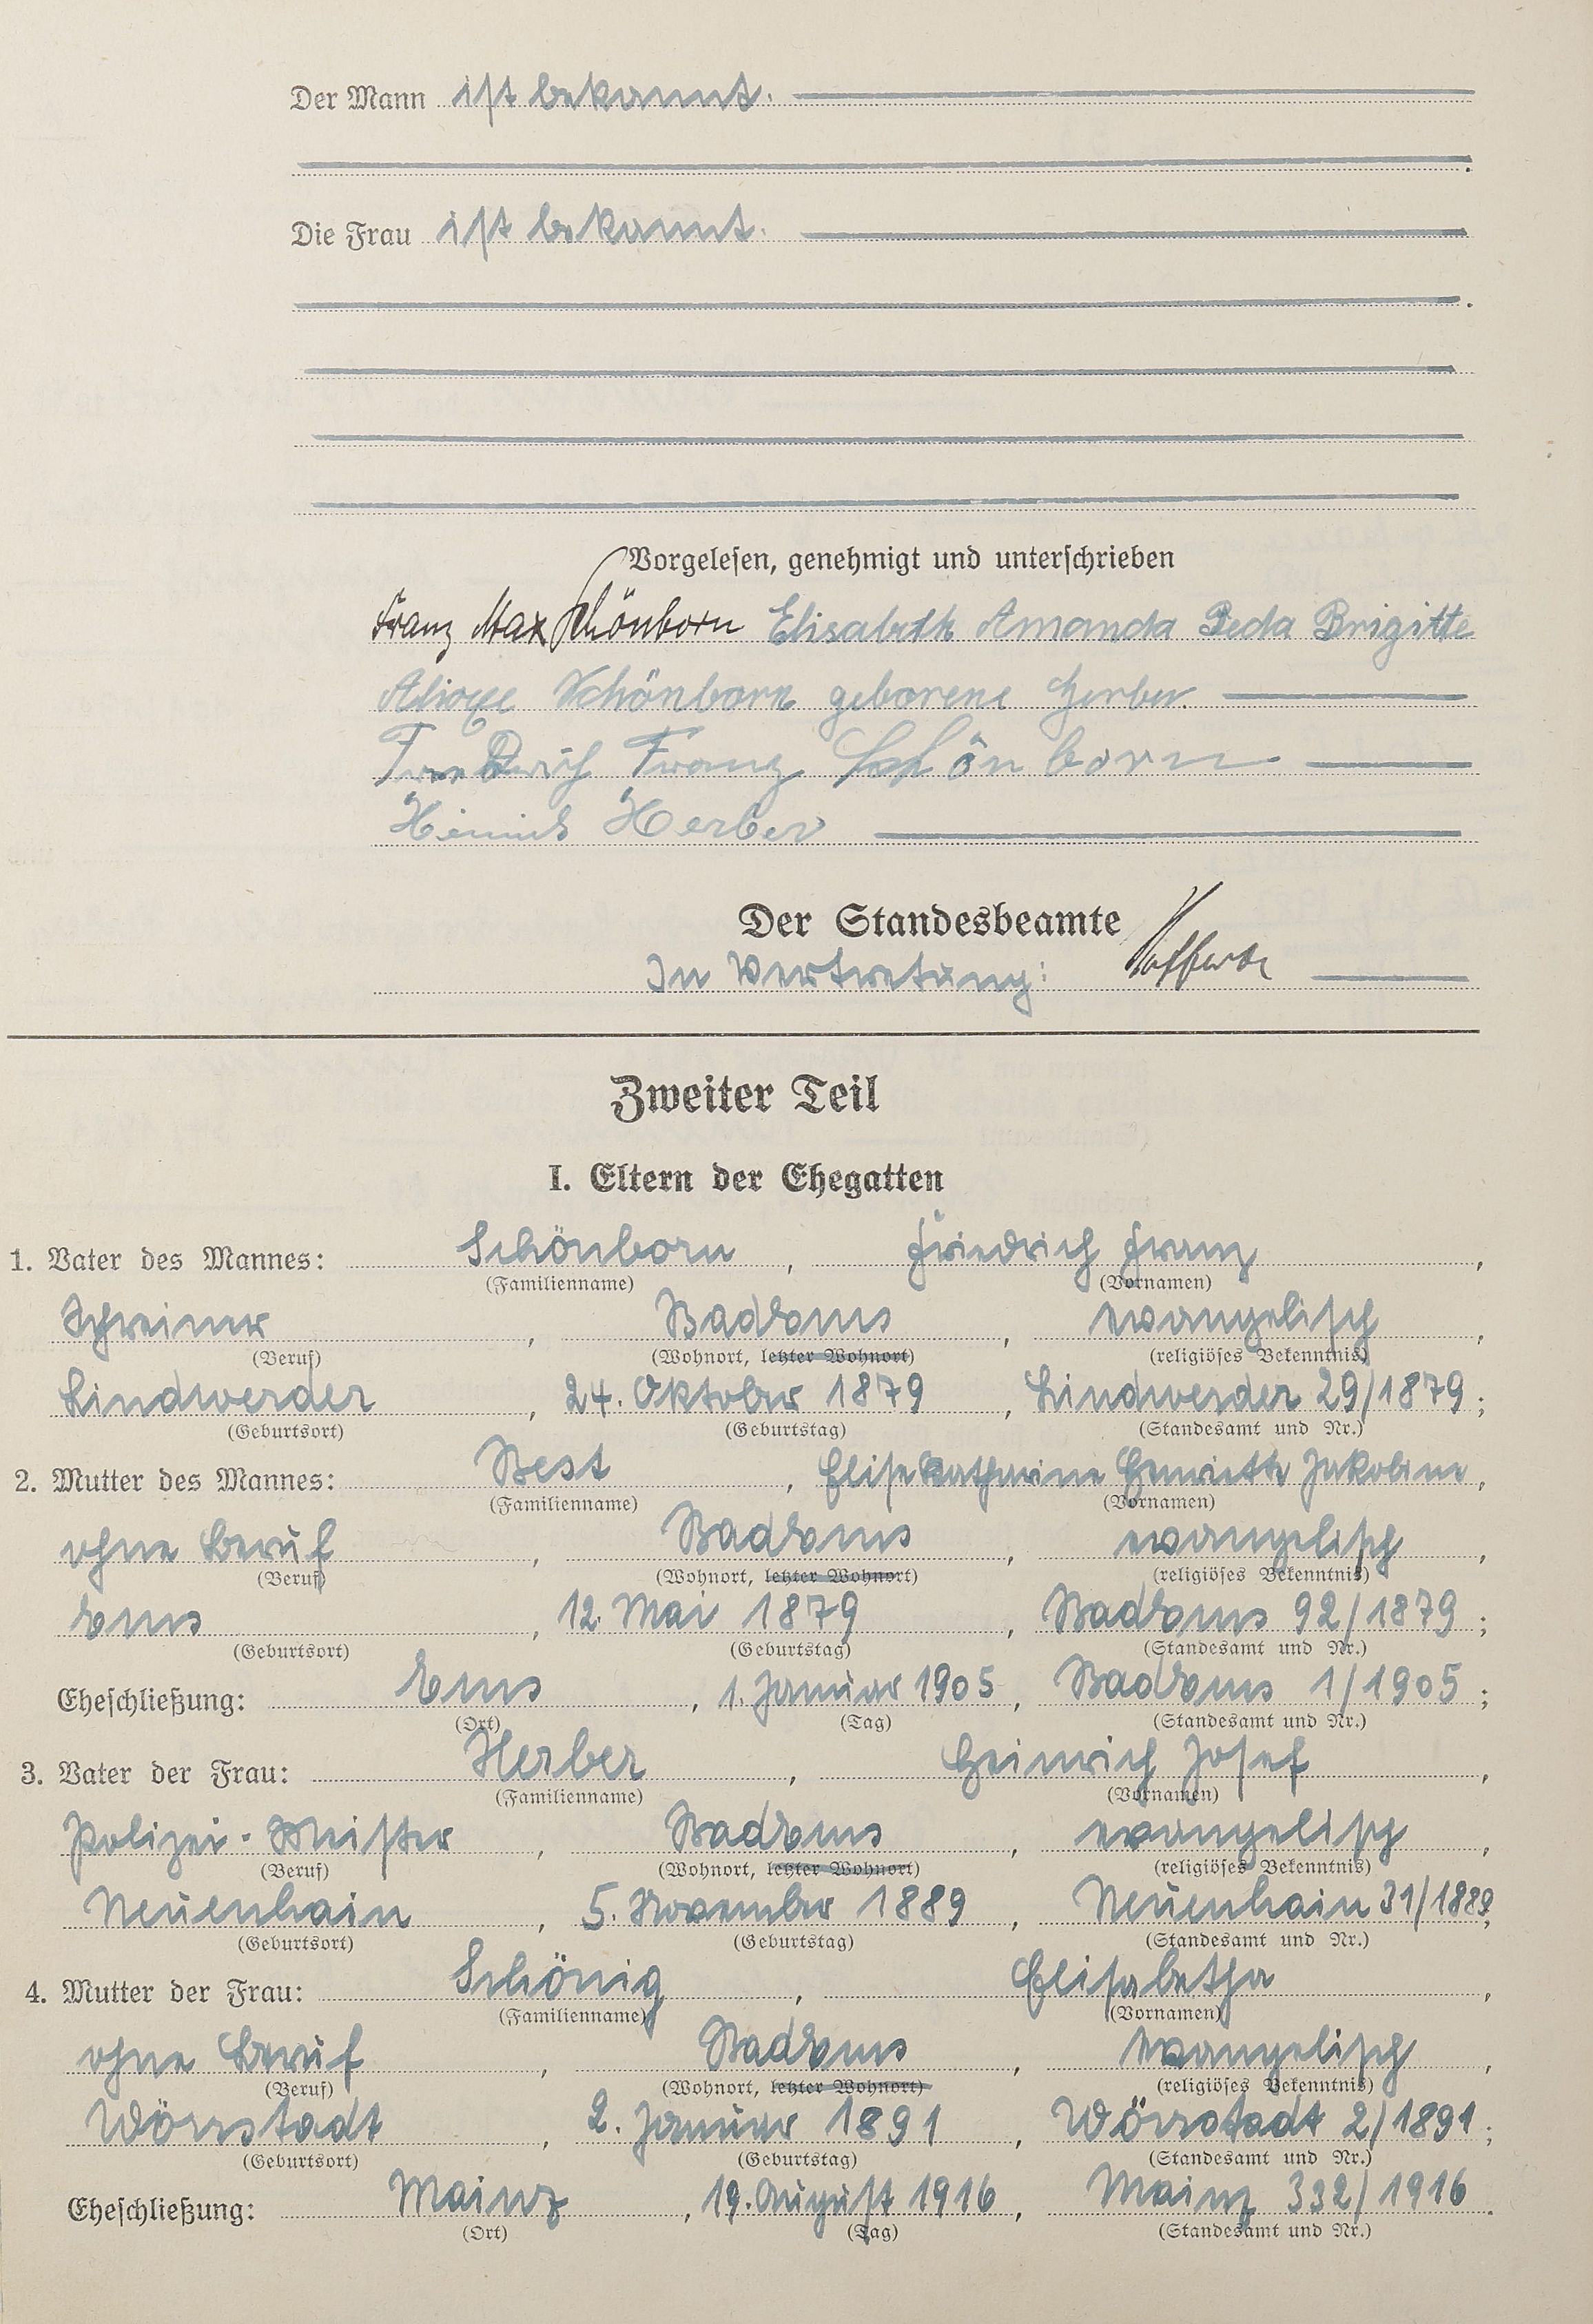 Der Mann ist bekannt.
Die Frau ist bekannt.
Vorgelesen, genehmigt und unterschrieben
Franz Max Schönborn Elisabeth Amanda Beda Brigitte
Schönborn geborene Herber.
Friedrich Franz Schönborn
Heinrich Herber
Der Standesbeamte
In Vertretung:
Zweiter Teil
I. Eltern der Ehegatten
1. Vater des Mannes: Schönborn, Friedrich Franz,
(Familienname) (Vornamen)
Schreiner, Bad Ems, evangelisch,
(Beruf) (Wohnort, letzter Wohnort) (religiöses Bekenntnis)
Lindwerder, 24. Oktober 1879, Lindwerder 29/1879;
(Geburtsort) (Geburtstag) (Standesamt und Nr.)
2. Mutter des Mannes: Best, Elise Katharine Henriette Jakobine,
(Familienname) (Vornamen)
ohne Beruf, Bad Ems, evangelisch,
(Beruf) (Wohnort, letzter Wohnort) (religiöses Bekenntnis)
Ems, 12. Mai 1879, Bad Ems 92/1879;
(Geburtsort) (Geburtstag) (Standesamt und Nr.)
Eheschließung: Ems, 1. Januar 1905, Bad Ems 1/1905;
(Ort) (Tag) (Standesamt und Nr.)
3. Vater der Frau: Herber, Heinrich Josef,
(Familienname) (Vornamen)
Polizei-Meister, Bad Ems, evangelisch,
(Beruf) (Wohnort, letzter Wohnort) (religiöses Bekenntnis)
Neuenhain, 5. November 1889, Neuenhain 31/1889;
(Geburtsort) (Geburtstag) (Standesamt und Nr.)
4. Mutter der Frau: Schönig, Elisabetha,
(Familienname) (Vornamen)
ohne Beruf, Bad Ems, evangelisch,
(Beruf) (Wohnort, letzter Wohnort) (religiöses Bekenntnis)
Wörrstadt, 2. Januar 1891, Wörrstadt 2/1891;
(Geburtsort) (Geburtstag) (Standesamt und Nr.)
Eheschließung: Mainz, 19. August 1916, Mainz 332/1916.
(Ort) (Tag) (Standesamt und Nr.)